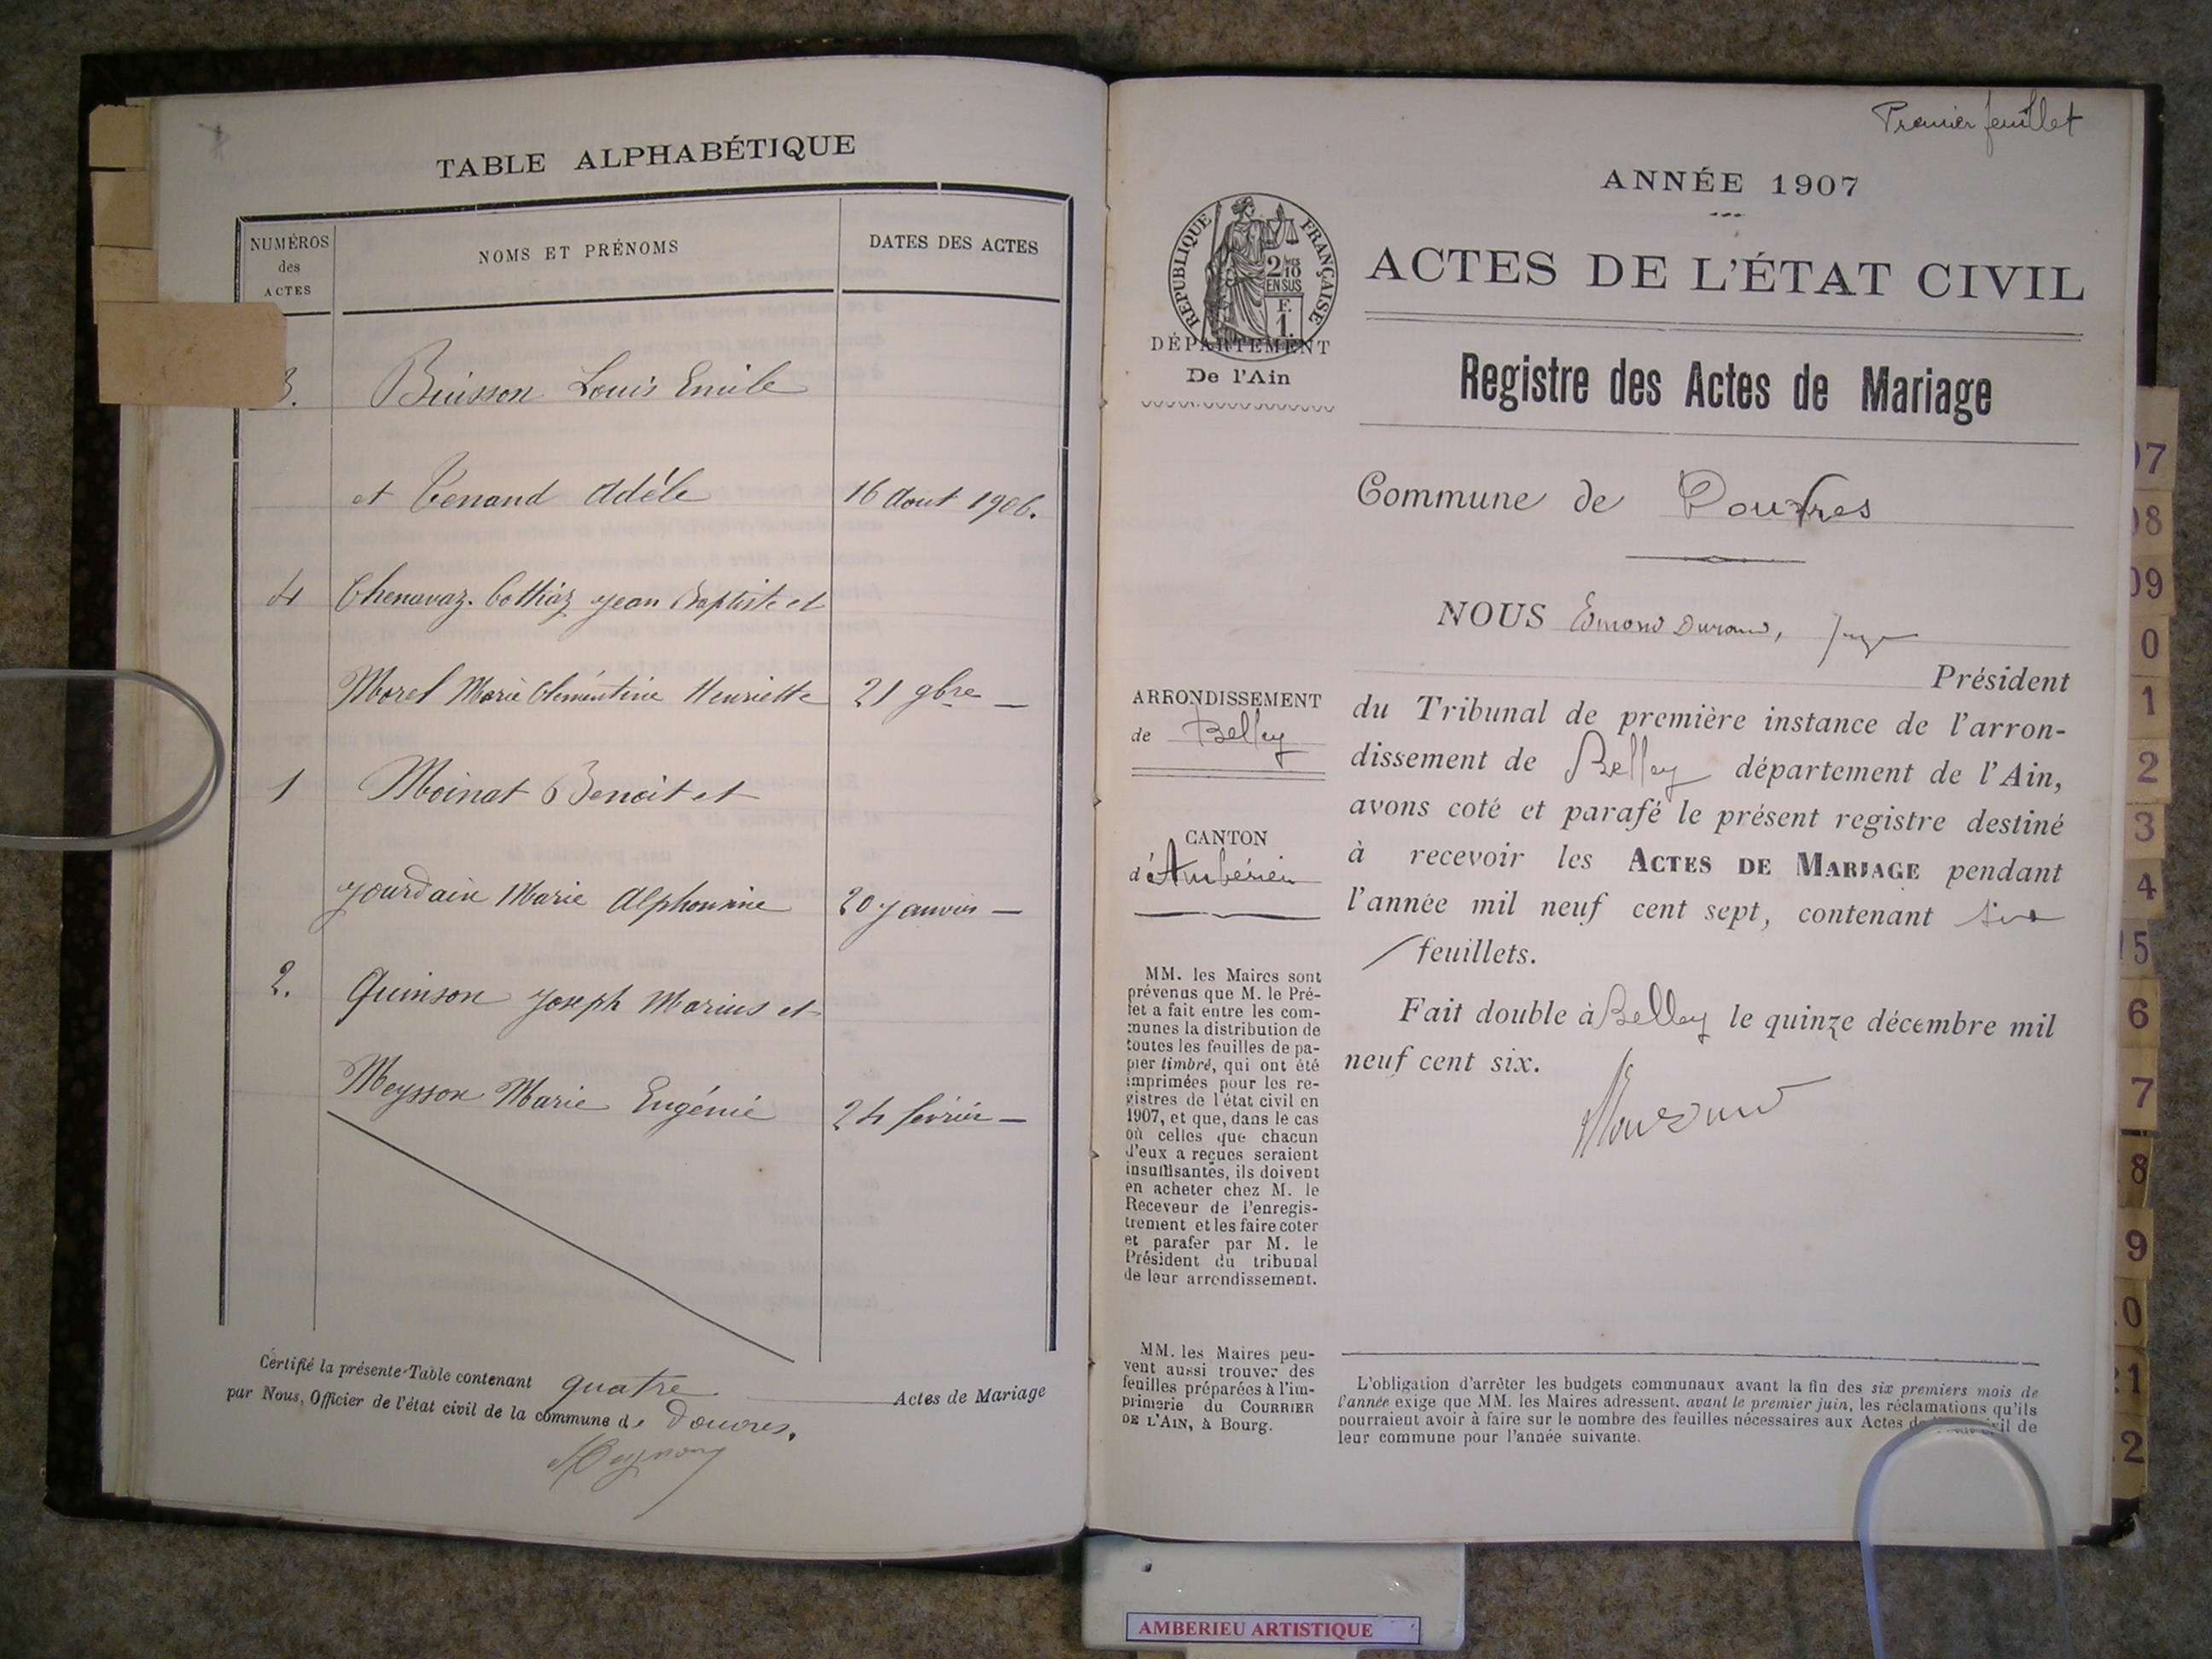 TABLE ALPHABÉTIQUE
NUMÉROS
des
ACTES
NOMS ET PRÉNOMS
DATES DES ACTES
3. Buisson Louis Emile
et Tenand Adéle 16 Aout 1906.
4 Chenavaz-Cotthiaz Jean Baptiste et
Morel Marie Clémentine Henriette 21 9bre —
1 Moinat Benoit et
Jourdain Marie Alphonsine 20 Janvier —
2. Quinson Joseph Marius et
Meysson Marie Eugénie 24 février —
Certifié la présente Table contenant quatre Actes de Mariage
par Nous, Officier de l'état civil de la commune de Douvres.
Premier feuillet
ANNÉE 1907
RÉPUBLIQUE FRANÇAISE
2/10
EN SUS
F.
1.
DÉPARTEMENT
De l'Ain
ACTES DE L'ÉTAT CIVIL
Registre des Actes de Mariage
Commune de Douvres
NOUS Edmond Durand, Juge
Président
du Tribunal de première instance de l'arron-
dissement de Belley département de l'Ain,
avons coté et parafé le présent registre destiné
à recevoir les ACTES DE MARIAGE pendant
l'année mil neuf cent sept, contenant six
feuillets.
Fait double à Belley le quinze décembre mil
neuf cent six.
ARRONDISSEMENT
de Belley
CANTON
d'Ambérieu
MM. les Maires sont
prévenus que M. le Pré-
fet a fait entre les com-
munes la distribution de
toutes les feuilles de pa-
pier timbré, qui ont été
imprimées pour les re-
gistres de l'état civil en
1907, et que, dans le cas
où celles que chacun
d'eux a reçues seraient
insuffisantes, ils doivent
en acheter chez M. le
Receveur de l'enregis-
trement et les faire coter
et parafer par M. le
Président du tribunal
de leur arrondissement.
MM. les Maires peu-
vent aussi trouver des
feuilles préparées à l'im-
primerie du COURRIER
DE L'AIN, à Bourg.
L'obligation d'arrêter les budgets communaux avant la fin des six premiers mois de
l'année exige que MM. les Maires adressent, avant le premier juin, les réclamations qu'ils
pourraient avoir à faire sur le nombre des feuilles nécessaires aux Actes de civil de
leur commune pour l'année suivante.
07
08
09
0
1
2
3
4
15
6
7
8
9
0
1
2
AMBERIEU ARTISTIQUE